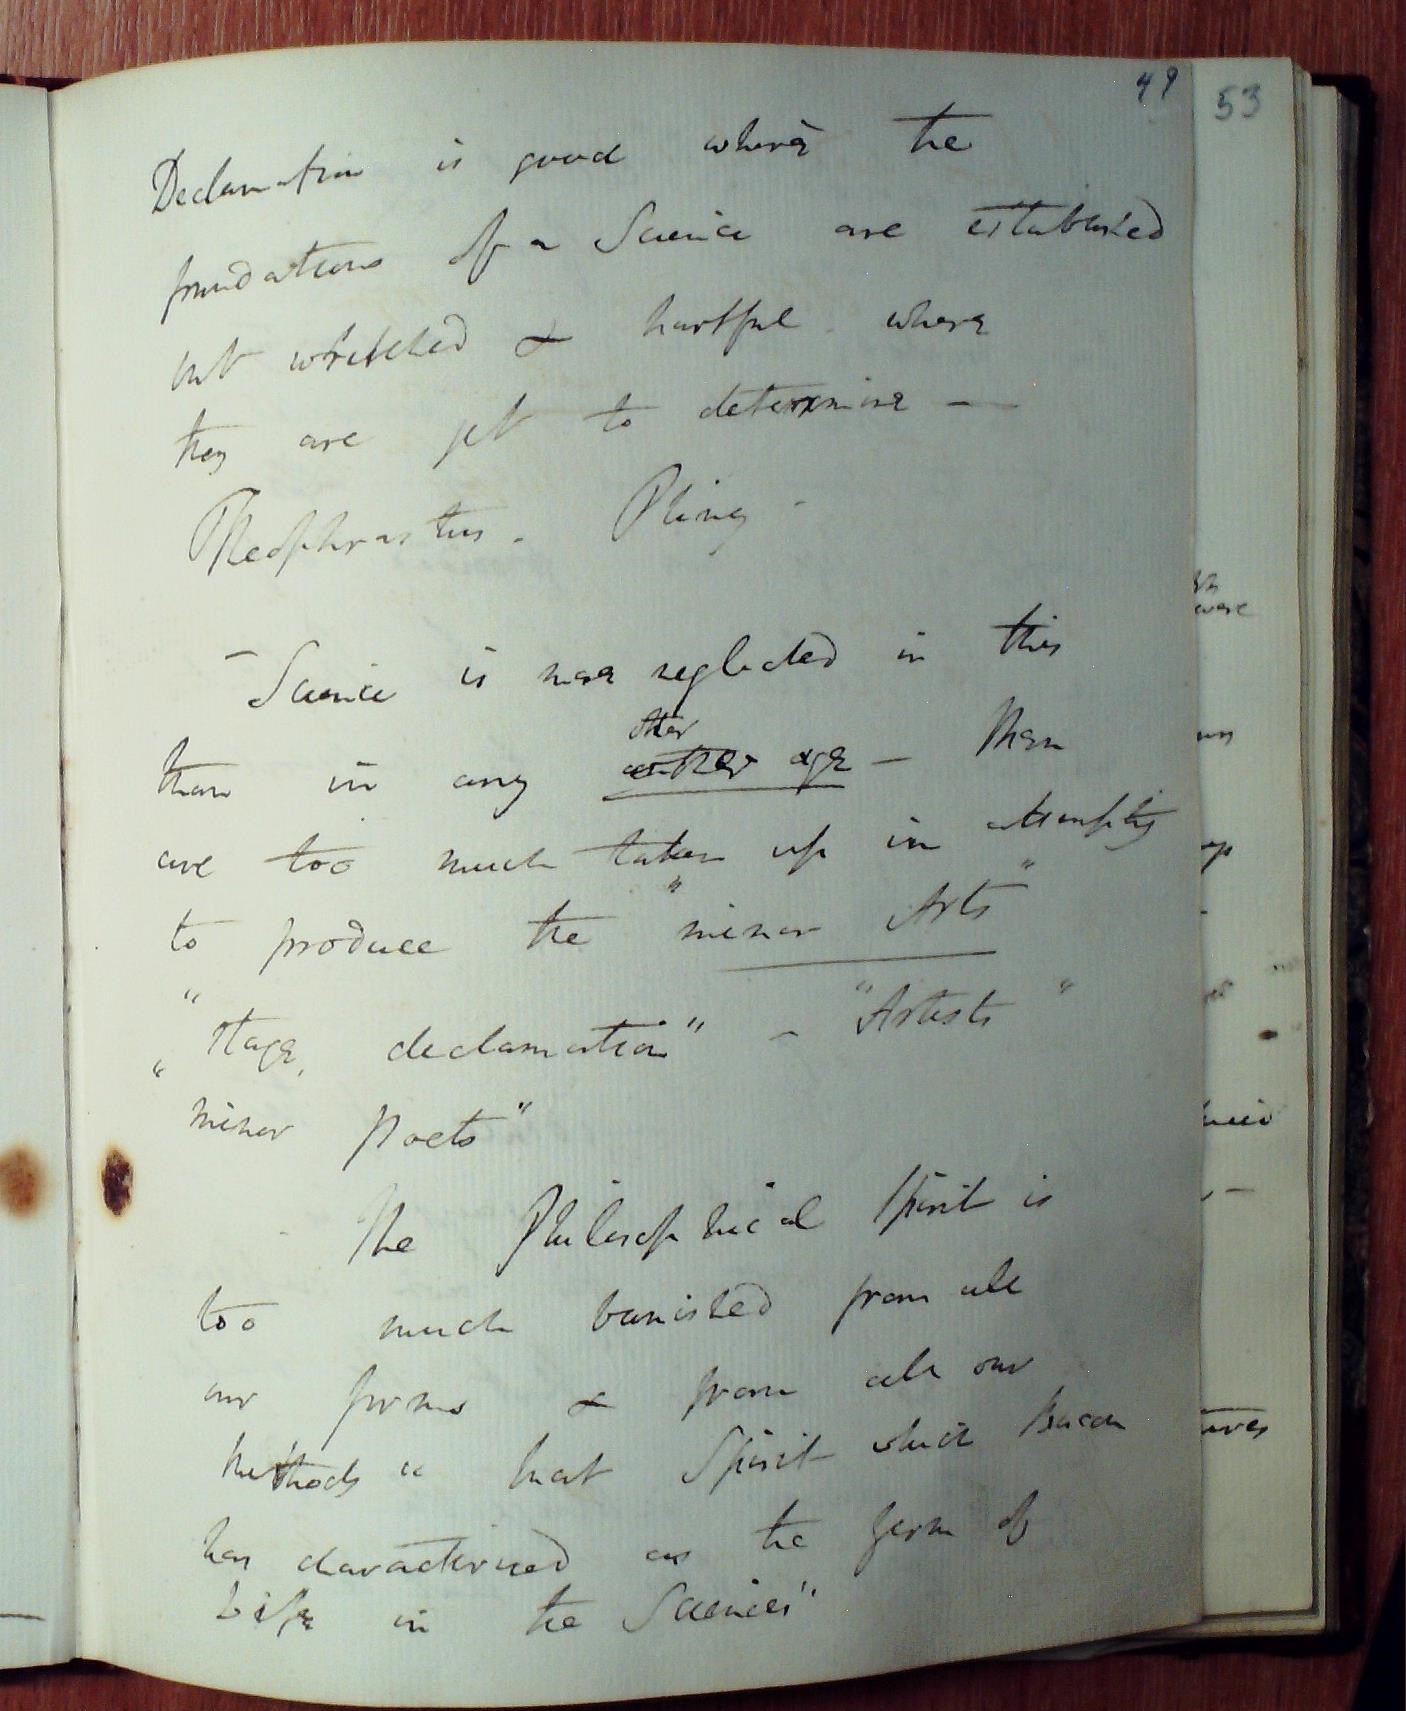 49
53
Declamation is good where the
foundations of a Science are established
but wretched & hurtful where
they are yet to determine —
Theophrastus. Pliny -
— Science is more neglected in this
other
than in any another age — Men
are too much taken up in attempts
to produce the "minor Arts"
"Stage, declamation" - "Artists"
"minor Poets"
The Philosophical Spirit is
too much banished from all
our forms & from all our
methods " that Spirit which Bacon
has characterised as the germ of
Life in the Sciences"
were